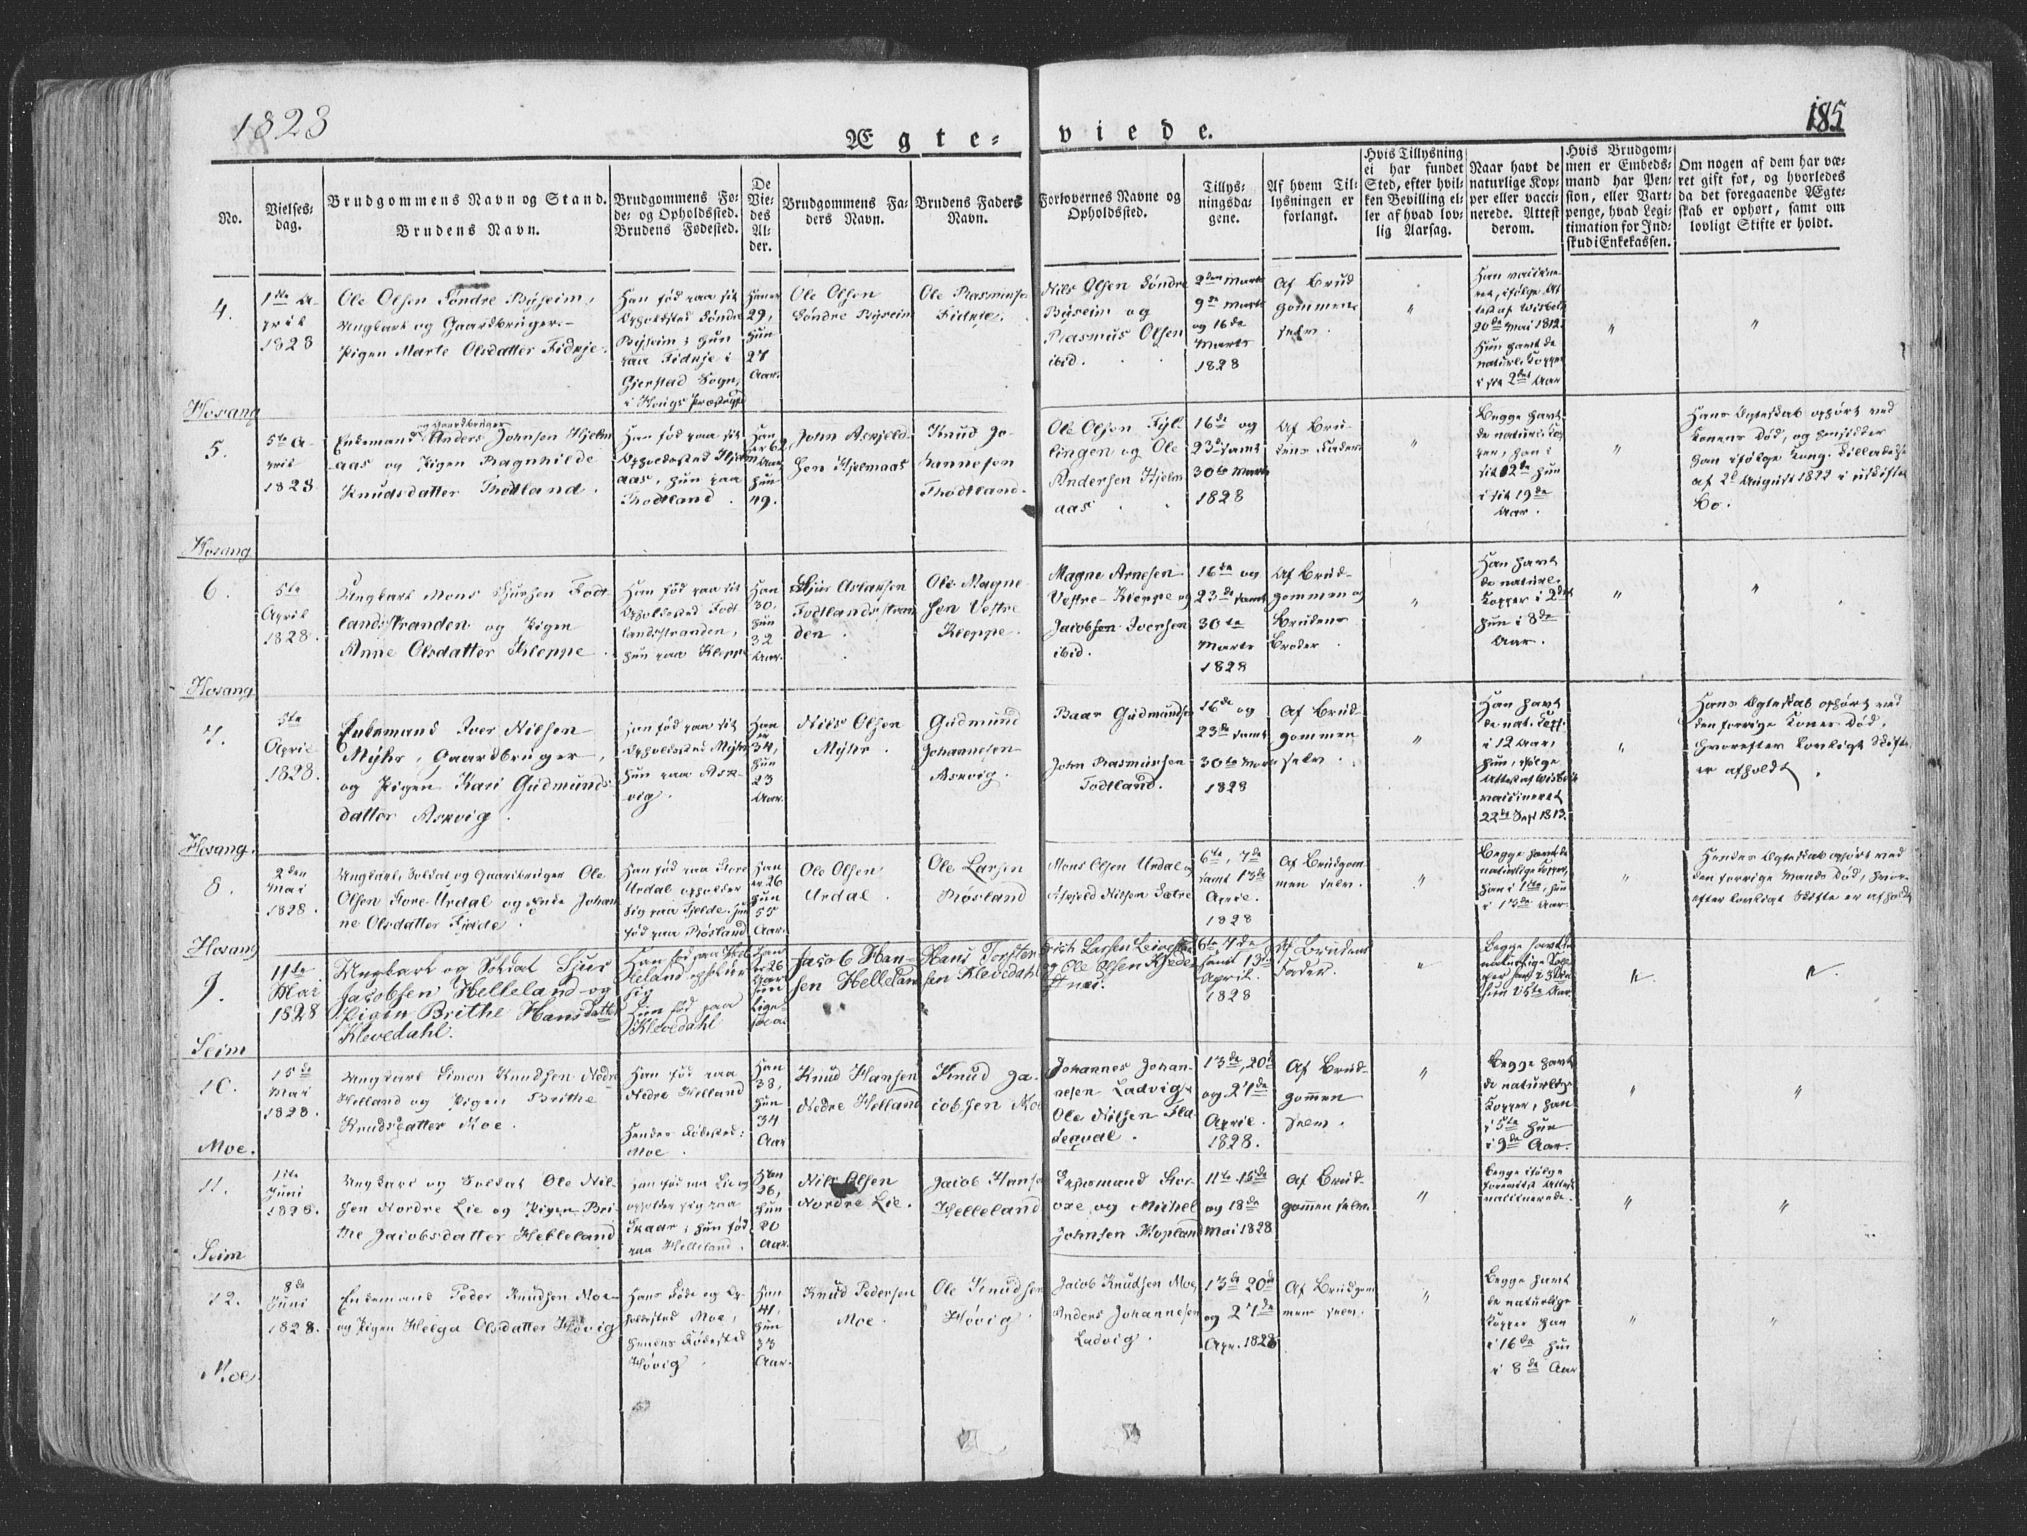 1828
185
Ægte-
viede.
No.
Vielses-
dag.
Brudgommens Navn og Stand.
Brudens Navn.
Brudgommens Fø-
de- og Opholdssted.
Brudens Fødested.
De
Vie-
des
Al-
der.
Brudgommens Fa-
ders Navn.
Brudens Faders
Navn.
Forlovernes Navne og
Opholdssted.
Tillys-
ningsda-
gene.
Af hvem Til-
lysningen er
forlangt.
Hvis Tillysning
ei har fundet
Sted, efter hvil-
ken Bevilling el-
ler af hvad lov-
lig Aarsag.
Naar havt de
naturlige Kop-
per eller vacci-
nerede. Attest
derom.
Hvis Brudgom-
men er Embeds-
mand har Pen-
sion, eller Vart-
penge, hvad Legi-
timation for Ind-
skud i Enkekassen.
Om nogen af dem har væ-
ret gift før, og hvorledes
da det foregaaende Ægte-
skab er ophørt, samt om
lovligt Skifte er holdt.
4.
1ste A-
pril
1828
Ole Olsen Søndre Bysein,
Ungkarl og Gaardbruger.-
Pigen Marte Olsdatter Fidnje.
Han fød paa sit
Opholdssted Søndre
Bysein; hun
paa Fidnje i
Gierstad Sogn,
i Hougs Præstegjd
Han er
29,
hun
27
Aar.
Ole Olsen
Søndre Bysein
Ole Rasmusen
Fidnje.
Nils Olsen Søndre
Bysein og
Rasmus Olsen
ibid.
2den Marts
9de Marts
og 16de
Marts
1828
Af Brud
gommen
selv.
"
Han vaccine-
ret, ifølge At
test af
20de Mai 1812.
Hun havt de
naturl. Kopper
i sit 2det Aar
"
"
Hosang
5.
5te A-
pril
1828
Enkemand og Gaardbruger Anders Johnsen Hjelm
aas og Pigen Ragnhilde
Knudsdatter Thodtland.
Han fød paa sit
Opholdssted Hjelm
aas, hun paa
Thodtland.
Han
er 62
Aar
hun
49.
John Askjeld-
sen Hjelmaas
Knud Jo-
hannesen
Thodtland.
Ole Olsen Fyl-
lingen og Ole
Andersen Hjelm
aas
16de og
23de samt
30te Marts
1828
Af Bru
dens Fader
"
Begge havt
de naturl. Kop-
per, han i
sit 12te hun
i sit 19de
Aar.
"
Hans Ægteskab ophørt ved
Konens Død, og henseider
han ifølge Kong. Tilladelse
af 2d August 1822 i uskiftet
Bo.
Hosang
6.
5te
April
1828.
Ungkarl Mons Sjursen Fodt
landsstranden og Pigen
Anne Olsdatter Kleppe.
Han fød paa sit
Opholdssted Fodt
landsstranden,
hun paa Kleppe
Han
30,
hun
32
Aar.
Sjur Aslaksen
Fodtlandsstran
den.
Ole Magne-
sen Vestre
Kleppe.
Magne Arnesen
Vestre-Kleppe og
Jacobsen Iversen
ibid.
16de og
23de samt
30te
Marts
1828
Af Brud-
gommen og
Brudens
Broder
"
Han havt
de naturl.
Kopper i 2det
hun i 8de
Aar.
"
"
Hosang
7.
5te
April
1828.
Enkemand Iver Nilsen
Myhr, Gaardbruger,
og Pigen Kari Gudmunds
datter Askvig.
han fød paa sit
Opholdssted Myhr
hun paa Ask-
vig.
Han
er
34,
hun
23
Aar.
Nils Olsen
Myhr.
Gudmund
Johannesen
Askvig.
Baar Gudmundsen
John Rasmusen
Fodtland.
16de og
23de samt
30te Marts
1828
Af Brud-
gommen
selv.
"
Han havt
de nat. Kopp.
i 12 Aar,
hun, ifølge
Attest af
vaccineret
22de Sept 1813.
"
Hans Ægteskab ophørt ved
den forrige Kones Død,
hvorefter lovligt Skifte
er afholdt.
Hosang.
8.
2den
Mai
1828.
Ungkarl, Soldat og Gaardbruger Ole
Olsen Store-Urdal og Enke Johan
ne Olsdatter Fjelde.
Han fød paa Store
Urdal opholder
sig paa Fjelde, hun
fød paa Røsland
Han
er 26
hun
55
Aar.
Ole Olsen
Urdal
Ole Larsen
Røsland
Mons Olsen Urdal og
Nilsen Sætre
6te, 7de
samt 13de
April.
1828
Af Brudgom-
men selv.
"
Begge havt de
naturlige Kopper,
han i 1ste, hun
i 13de Aar.
"
Hendes Ægteskab ophørt ved
den forrige Mands Død, hvor-
efter lovligt Skifte er afholdt
Hosang
9.
11te
Mai
1828
Ungkarl og Soldat Sjur
Jacobsen Helleland og
Pigen Brithe Hansdatter
Klevedahl.
Han fød paa Hel
leland opholder
sig
Hun fød paa
Klevedahl
Han
er 26
Aar
hun
lige
saa
Jacob Han-
sen Helleland
Hans Torsten
sen Klevedahl
Larsen
og Ole Olsen
6te 7de
samt 13de
April.
1828
Af Brudens
Fader.
"
Begge havt de
naturlige Kop
per han i 3die
hun i 5te Aar.
"
"
Seim
10.
15de
Mai
1828.
Ungkarl Simon Knudsen Nedre
Helland og Pigen Brithe
Knudsdatter Moe.
Han fød paa
Nedre Helland
Hendes Fødested:
Moe.
Han
38,
hun
34
Aar
Knud Hansen
Nedre Helland
Knud Ja-
cobsen Moe
Johannes Johan-
nesen Ladvig,
Ole Nilsen Fla-
deqval.
13de, 20de
og 27de
April.
1828.
Af Brud-
gommen
selv.
"
Begge havt
de naturlige
Kopper, han
i 5te hun
i 9de Aar.
"
"
Moe.
11.
1ste
Juni
1828.
Ungkarl og Soldat Ole Nil-
sen Nordre Lie og Pigen Bri
the Jacobsdatter Helleland
Han fød paa Lie og
opholder sig paa
Skaar; hun fød
paa Helleland.
Han
26,
hun
20
Aar.
Nils Olsen
Nordre Lie.
Jacob Hansen
Helleland
og Michel
Johnsen Kopland
11te 15de
og 18de
Mai 1828
Af Brud
gommen selv.
"
Begge ifølge
foreviste Attester
vaccinerede.
"
"
Seim
12.
8de
Juni
1828.
Enkemand Peder Knudsen Moe
og Pigen Helga Olsdatter Høvig
Hans Føde og Op-
holdssted Moe,
hendes Fødested
Høvig.
Han
41
hun
33
Aar.
Knud Pedersen
Moe.
Ole Knudsen
Høvig.
Jacob Knudsen Moe,
Anders Johannesen
Ladvig.
13de 20de
og 27de
Apr. 1828
Af Brudgom
men selv.
"
Begge havt
de naturlige
Kopper han
i 16de hun
i 8de Aar
"
"
Moe.